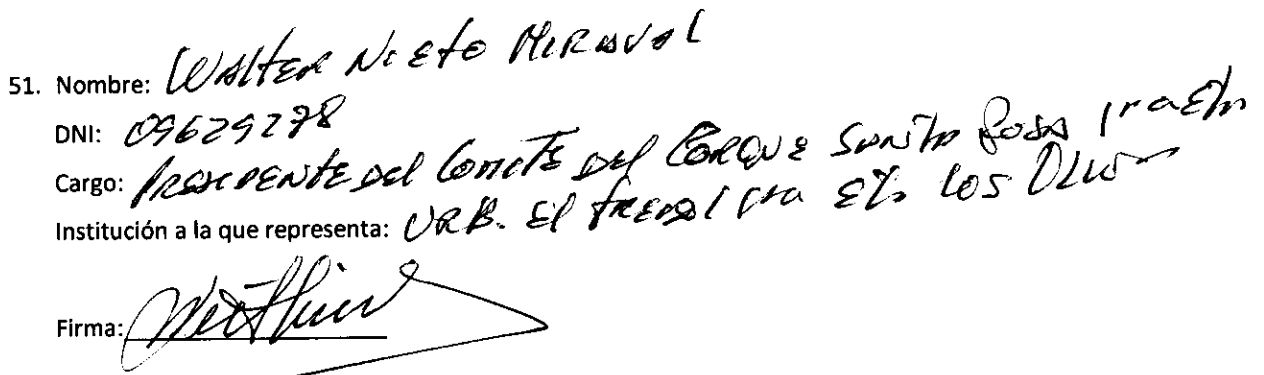 51. Nombre: Walter Nieto Miraval
DNI: 09629278
Cargo: Presidente del Comite del Parque Santa Rosa 1ra Etp
Institución a la que representa: URB. El Trebol 1ra Etp Los Olivos
Firma: